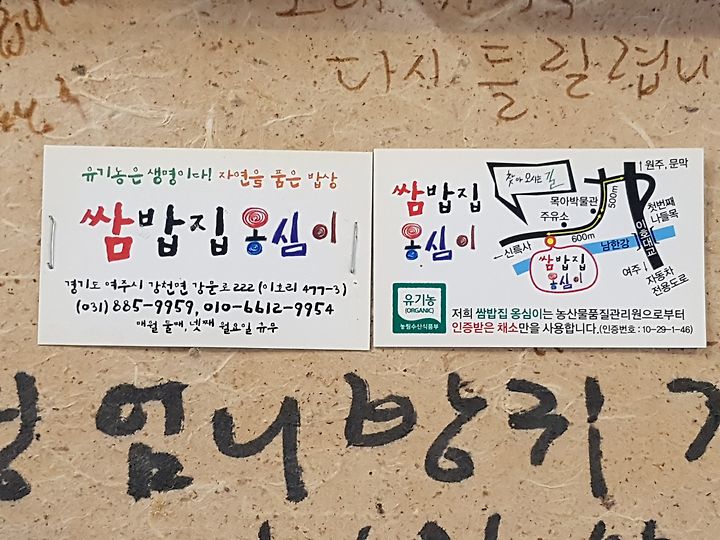 다시 들릴렵니
유기농은 생명이다! 자연을 품은 밥상
쌈밥집 옹심이
경기도 여주시 강천면 강문로 222 (이호리 477-3)
(031) 885-9959, 010-6612-9954
매월 둘째, 넷째 월요일 휴무
쌈밥집
옹심이
찾아 오시는 길
원주, 문막
목아박물관
500m
첫번째
나들목
주유소
600m
이호대교
신륵사
남한강
쌈밥집
옹심이
여주
자동차
전용도로
유기농
(ORGANIC)
농림수산식품부
저희 쌈밥집 옹심이는 농산물품질관리원으로부터
인증받은 채소만을 사용합니다.(인증번호 : 10-29-1-46)
엄니 방귀